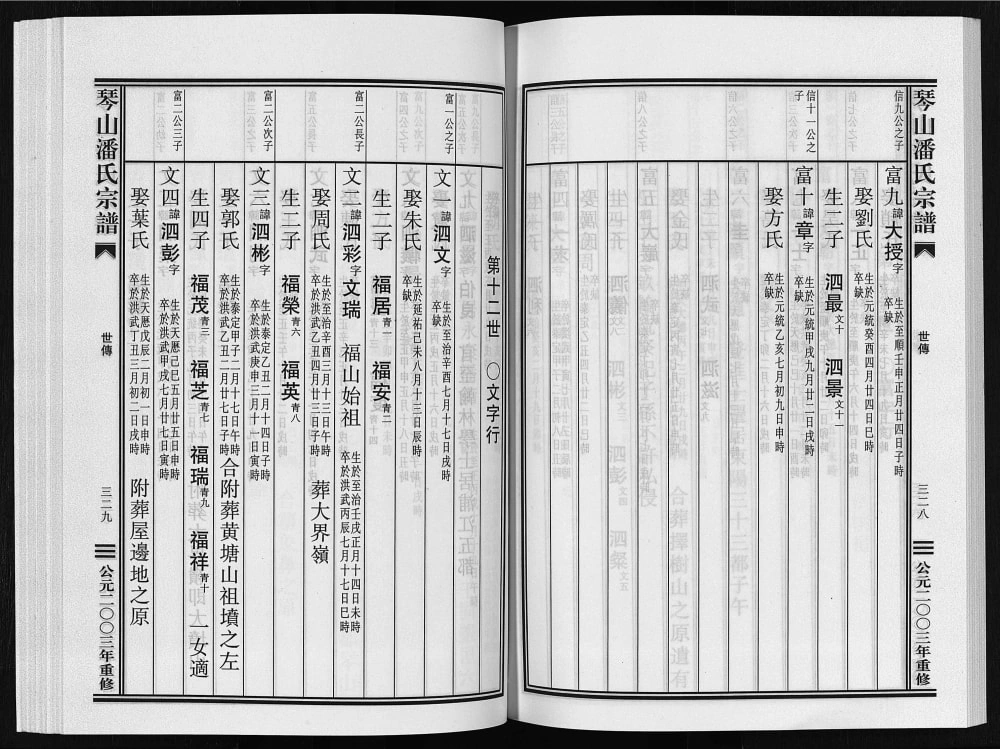 琴山潘氏宗譜
世傳
三二八
公元二〇〇三年重修
信九公之子
富九 諱 大授 字 生於至順壬申正月廿四日子時 卒缺
娶劉氏 生於元統癸酉四月廿四日巳時 卒缺
生二子 泗最 文十 泗景 文十一
信十一公之子
富十 諱 章 字 生於元統甲戌九月廿二日戌時 卒缺
娶方氏 生於元統乙亥七月初九日申時 卒缺
第十二世 〇文字行
富一公之子
文一 諱 泗文 字 生於至治辛酉七月十七日戌時 卒缺
娶朱氏 生於延祐己未八月十三日辰時 卒缺
生二子 福居 青一 福安 青二
富二公長子
文二 諱 泗彩 字 文瑞 福山始祖 生於至治壬戌正月十四日未時 卒於洪武丙辰七月十七日巳時
娶周氏 生於至治辛酉三月十三日午時 卒於洪武乙丑四月廿三日子時 葬大界嶺
生二子 福榮 青六 福英 青八
富二公次子
文三 諱 泗彬 字 生於泰定乙丑二月十四日子時 卒於洪武庚申三月十一日寅時
娶郭氏 生於泰定甲子二月十七日午時 卒於洪武乙丑二月廿七日子時 合附葬黄塘山祖墳之左
生四子 福茂 青三 福芝 青七 福瑞 青九 福祥 青十 一女適
富二公三子
文四 諱 泗彭 字 生於天歷己巳五月廿五日申時 卒於洪武甲戌七月廿七日寅時
娶葉氏 生於天歷戊辰二月初一日申時 卒於洪武丁丑三月初二日戌時 附葬屋邊地之原
琴山潘氏宗譜
世傳
三二九
公元二〇〇三年重修